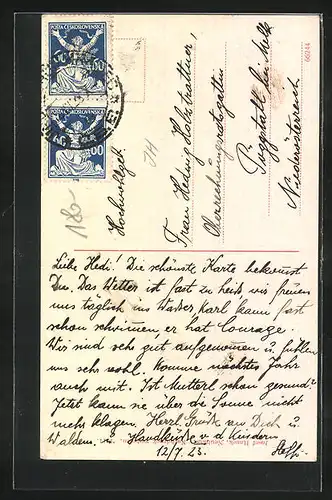 POŠTA ČESKOSLOVENSKÁ
POŠTA ČESKOSLOVENSKÁ
180
Hochwolgeb
Frau Hedwig Holzstrattner,
Oberrechnungsratsgattin
Poggstall
Niederösterreich
60244
Liebe Hedi! Die schönste Karte bekommst
Du. Das Wetter ist fast zu heiß wir freuen
uns täglich ins Wasser Karl kann fast
schon schwimmen er hat Courage
Wir sind sehr gut aufgenommen u. fühlen
uns sehr wohl. Komme nächstes Jahr
auch mit. Ist Mutterl schon gesund?
Jetzt kann sie über die Sonne nicht
mehr klagen. Herzl. Grüße an Dich u.
Waldem. u. Handküße v. d. Kindern
12/7. 23. Steffi